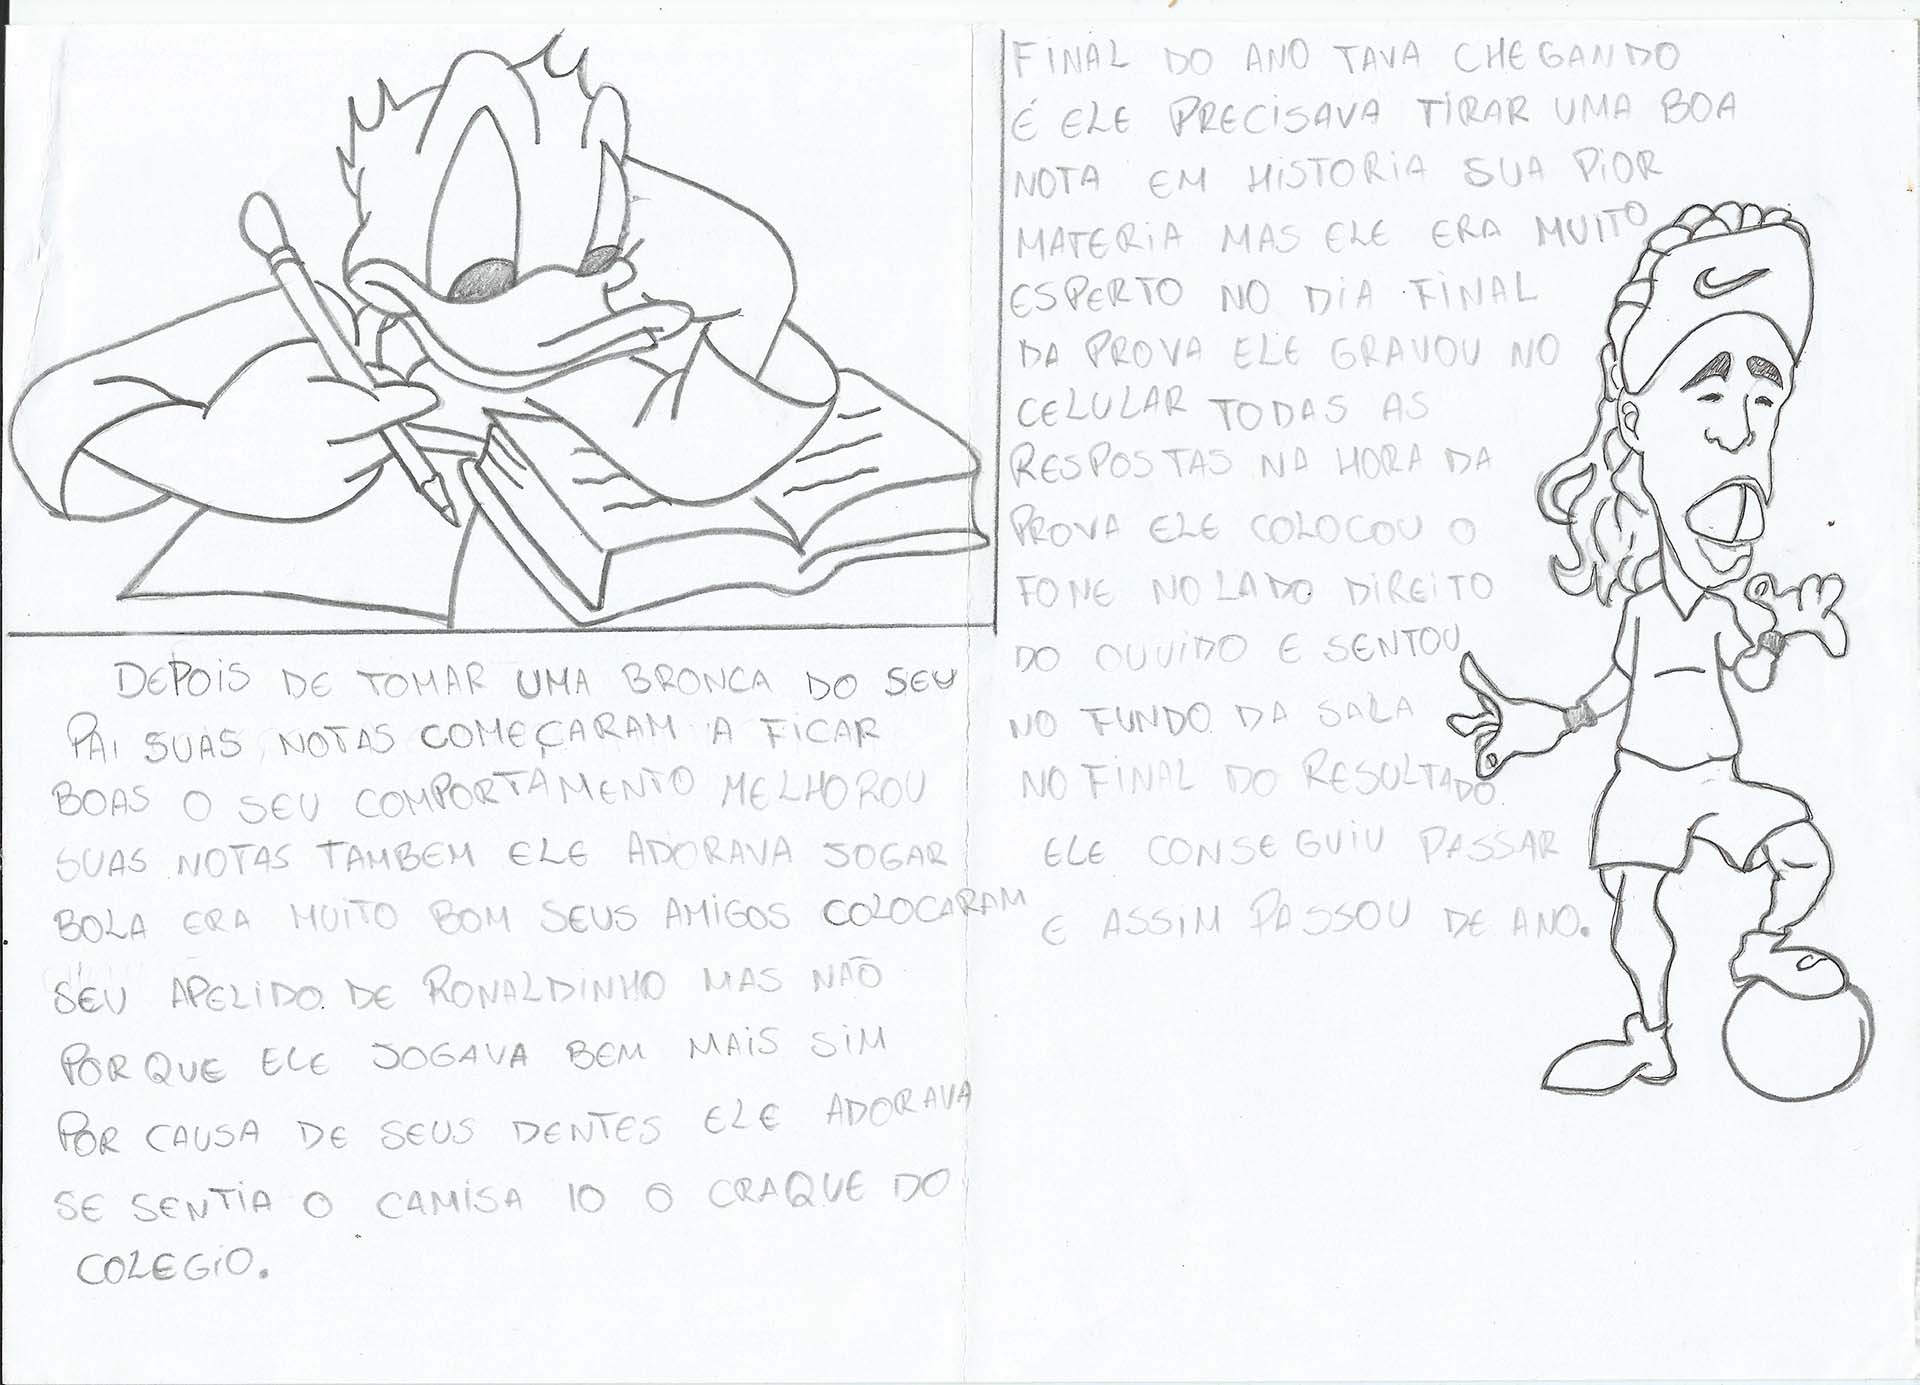 DEPOIS DE TOMAR UMA BRONCA DO SEU
PAI SUAS NOTAS COMEÇARAM A FICAR
BOAS O SEU COMPORTAMENTO MELHOROU
SUAS NOTAS TAMBEM ELE ADORAVA JOGAR
BOLA ERA MUITO BOM SEUS AMIGOS COLOCARAM
SEU APELIDO DE RONALDINHO MAS NÃO
POR QUE ELE JOGAVA BEM MAIS SIM
POR CAUSA DE SEUS DENTES ELE ADORAVA
SE SENTIA O CAMISA 10 O CRAQUE DO
COLEGIO.
FINAL DO ANO TAVA CHEGANDO
É ELE PRECISAVA TIRAR UMA BOA
NOTA EM HISTORIA SUA PIOR
MATERIA MAS ELE ERA MUITO
ESPERTO NO DIA FINAL
DA PROVA ELE GRAVOU NO
CELULAR TODAS AS
RESPOSTAS NA HORA DA
PROVA ELE COLOCOU O
FONE NO LADO DIREITO
DO OUVIDO E SENTOU
NO FUNDO DA SALA
NO FINAL DO RESULTADO
ELE CONSEGUIU PASSAR
E ASSIM PASSOU DE ANO.